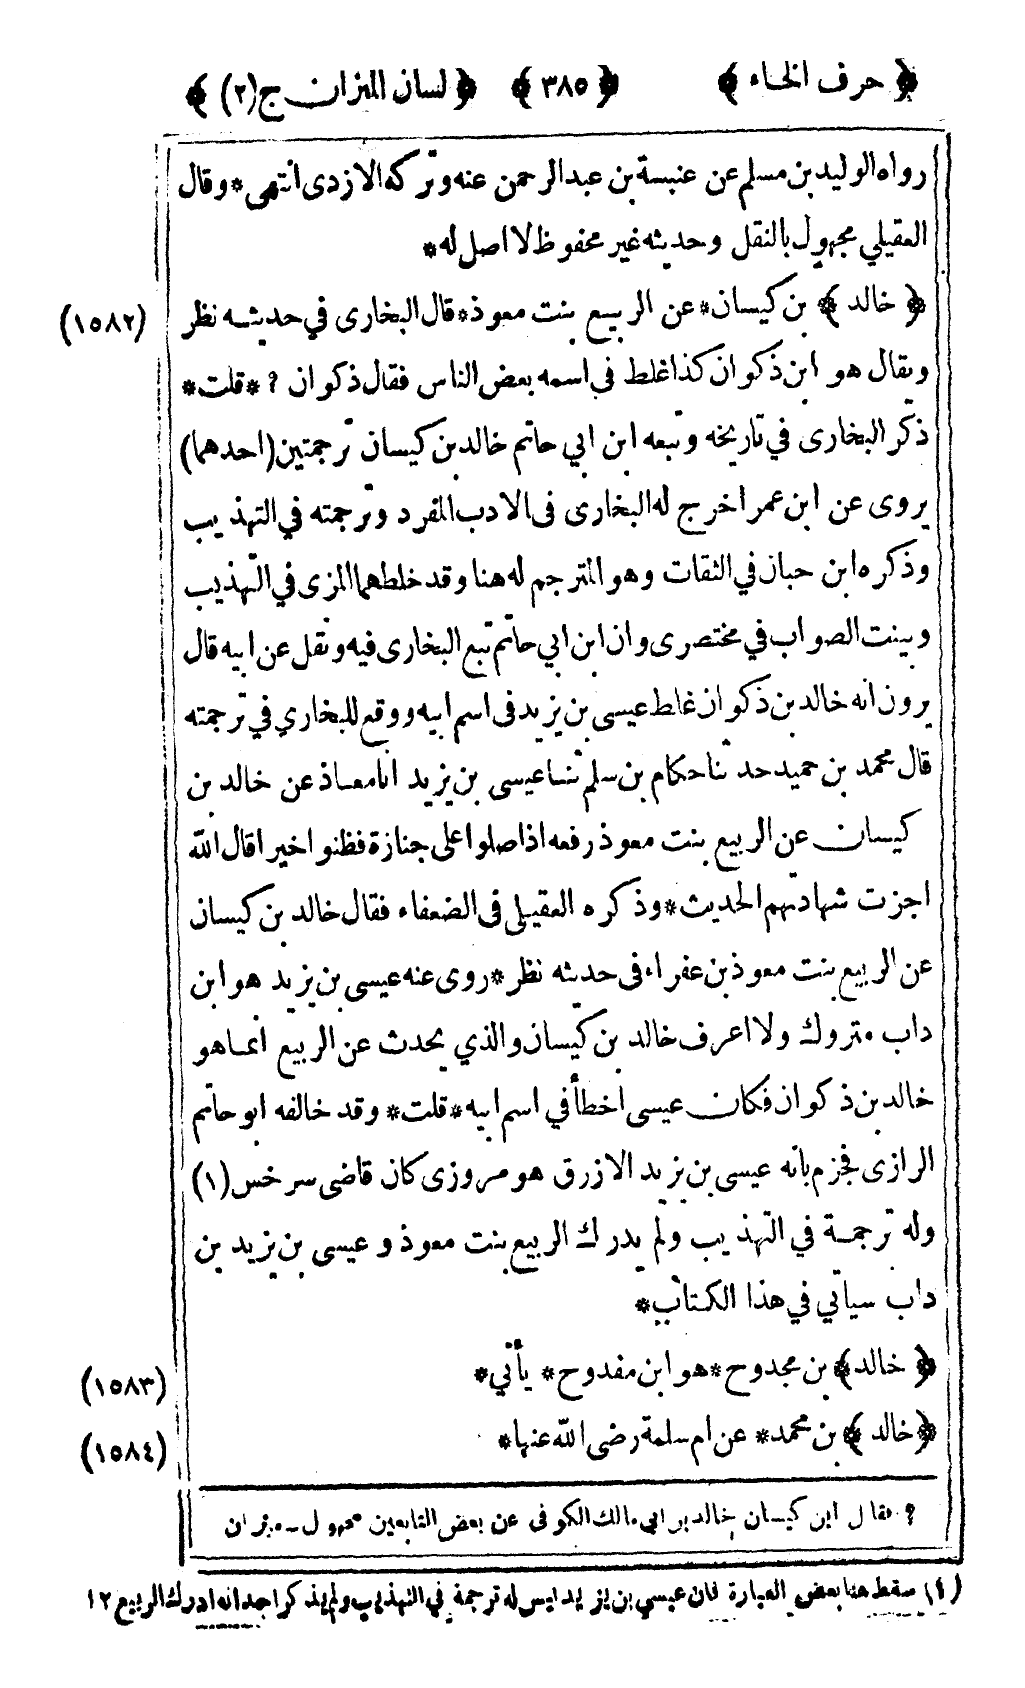 ﴿ حرف الخاء ﴾ ﴿ ٣٨٥ ﴾ ﴿ لسان الميزان ج (٢) ﴾
رواه الوليد بن مسلم عن عنبسة بن عبد الرحمن عنه وتركه الازدى انتهى * وقال
العقيلي مجهول بالنقل وحديثه غير محفوظ لا اصل له *
﴿ خالد ﴾ بن كيسان * عن الربيع بنت معوذ * قال البخارى في حديثه نظر (١٥٨٢)
ويقال هو ابن ذكوان كذا غلط في اسمه بعض الناس فقال ذكوان ? * قلت *
ذكر البخارى في تاريخه وتبعه ابن ابي حاتم خالد بن كيسان ترجمتين (احدهما)
يروى عن ابن عمر اخرج له البخارى فى الادب المفرد وترجمته في التهذيب
وذكره ابن حبان في الثقات وهو المترجم له هنا وقد خلطهما المزى في التهذيب
وبينت الصواب في مختصرى وان ابن ابي حاتم تبع البخارى فيه ونقل عن ابيه قال
يرون انه خالد بن ذكوان غلط عيسى بن يزيد فى اسم ابيه ووقع للبخاري في ترجمته
قال محمد بن حميد حد ثنا حكام بن سلم ثنا عيسى بن يزيد انا معاذ عن خالد بن
كيسان عن الربيع بنت معوذ رفعه اذا صلوا على جنازة فظنوا خيرا قال الله
اجزت شهادتهم الحديث * وذكره العقيلى فى الضعفاء فقال خالد بن كيسان
عن الربيع بنت معوذ بن عفراء فى حديثه نظر * روى عنه عيسى بن يزيد هو ابن
داب متروك ولا اعرف خالد بن كيسان والذي يحدث عن الربيع انما هو
خالد بن ذكوان فكان عيسى اخطأ في اسم ابيه * قلت * وقد خالفه ابو حاتم
الرازى فجزم بانه عيسى بن يزيد الازرق هو مروزى كان قاضى سرخس (١)
وله ترجمة في التهذيب ولم يدرك الربيع بنت معوذ وعيسى بن يزيد بن
داب سياتي في هذا الكتاب *
﴿ خالد ﴾ بن مجدوح * هو ابن مقدوح * يأتي * (١٥٨٣)
﴿ خالد ﴾ بن محمد * عن ام سلمة رضى الله عنها * (١٥٨٤)
? فقال ابن كيسان خالد بن ابي مالك الكوفى عن بعض التابعين مجهول ـ ميزان
(١) سقط هنا بعض العبارة فان عيسى بن يزيد ليس له ترجمة في التهذيب ولم يذكر احد انه ادرك الربيع ١٢